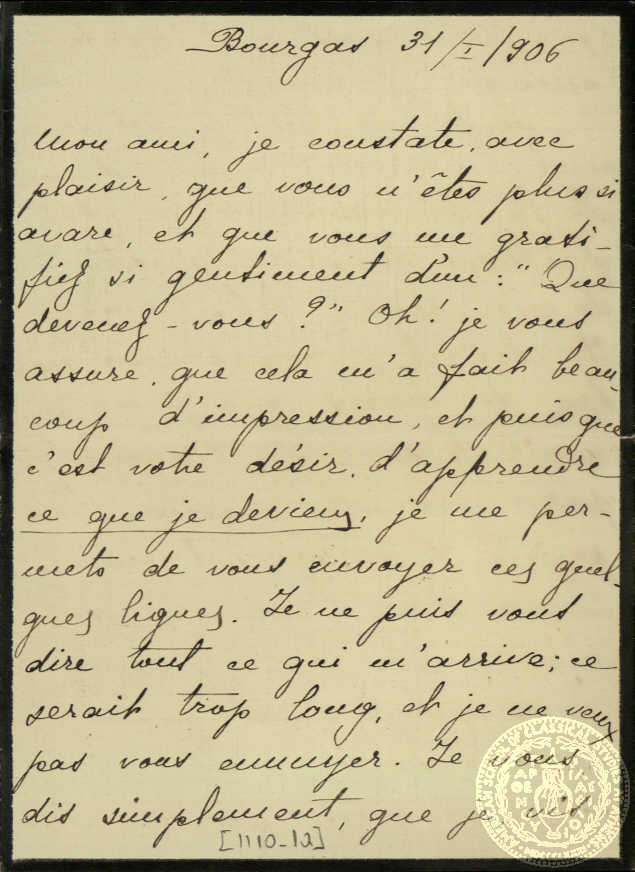 Bourgas 31/I/906
Mon ami, je constate, avec
plaisir, que vous n'êtes plus si
avare, et que vous me grati-
fiez si gentiment d'un: "Que
devenez-vous?" Oh! je vous
assure, que cela m'a fait beau-
coup d'impression, et puisque
c'est votre désir, d'apprendre
ce que je deviens, je me per-
mets de vous envoyer ces quel-
ques lignes. Je ne puis vous
dire tout ce qui m'arrive; ce
serait trop long, et je ne veux
pas vous ennuyer. Je vous
dis simplement, que je vis
[1110-12]
AMERICAN SCHOOL OF CLASSICAL STUDIES